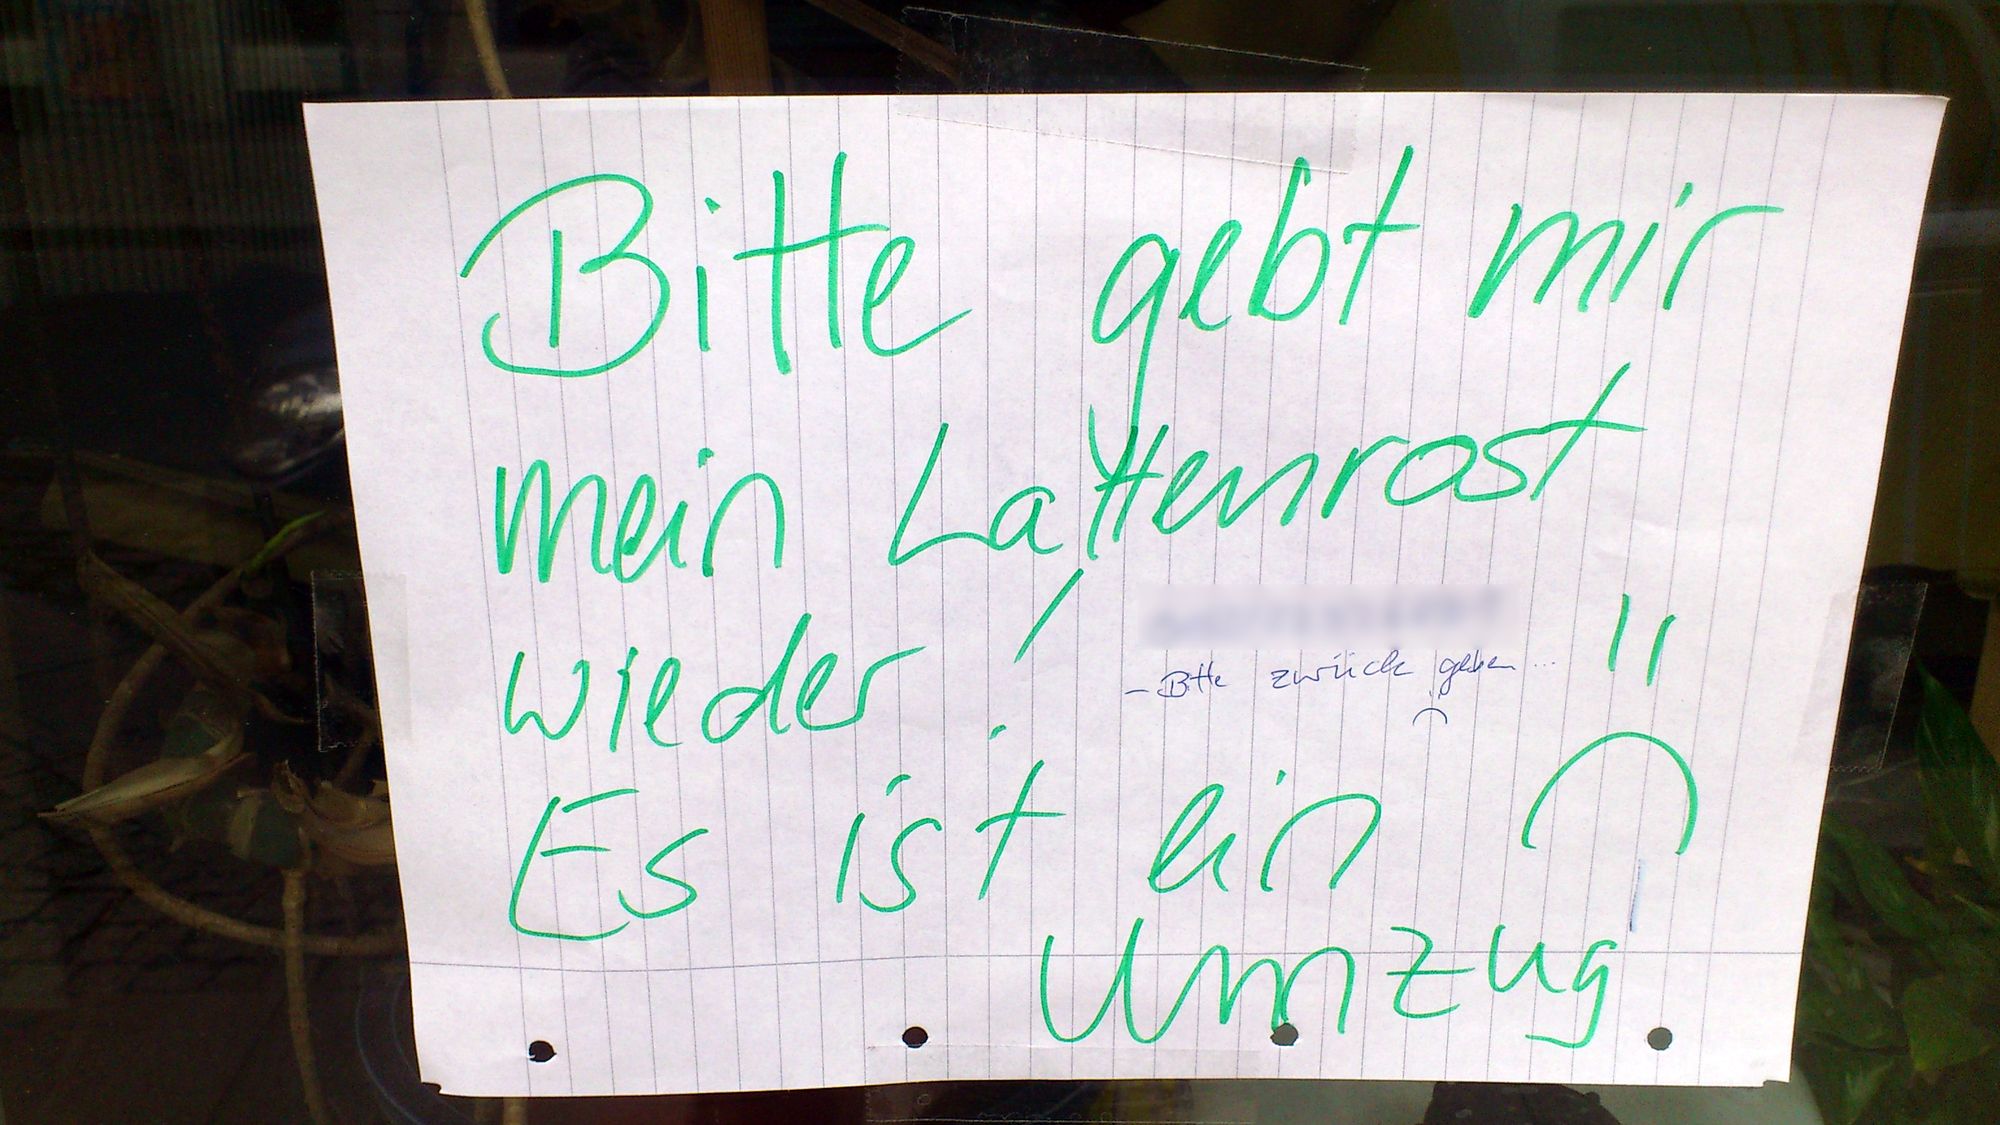 Bitte gebt mir
mein Lattenrost
wieder!
- Bitte zurück geben...
Es ist ein
Umzug